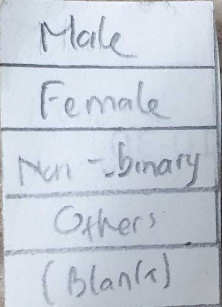 Male
Female
Non-binary
Others
(Blank)